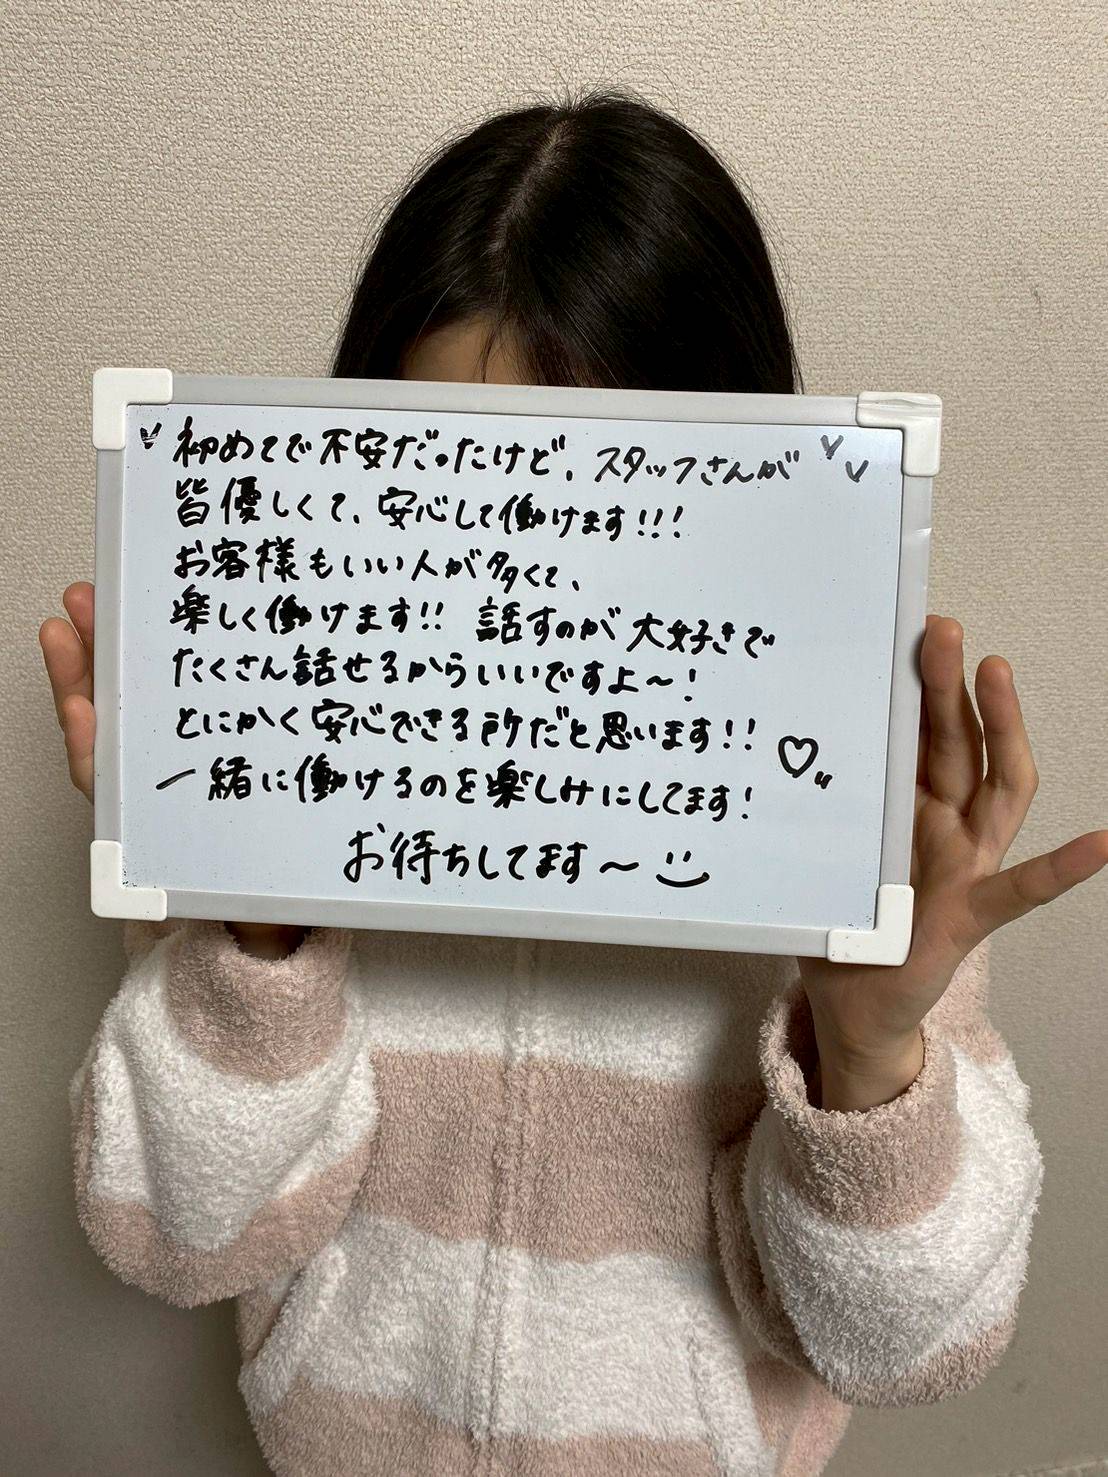 初めてで不安だったけど、スタッフさんが
皆優しくて、安心して働けます!!!
お客様もいい人が多くて、
楽しく働けます!! 話すのが大好きで
たくさん話せるからいいですよ〜!
とにかく安心できる所だと思います!!
一緒に働けるのを楽しみにしてます!
お待ちしてます〜